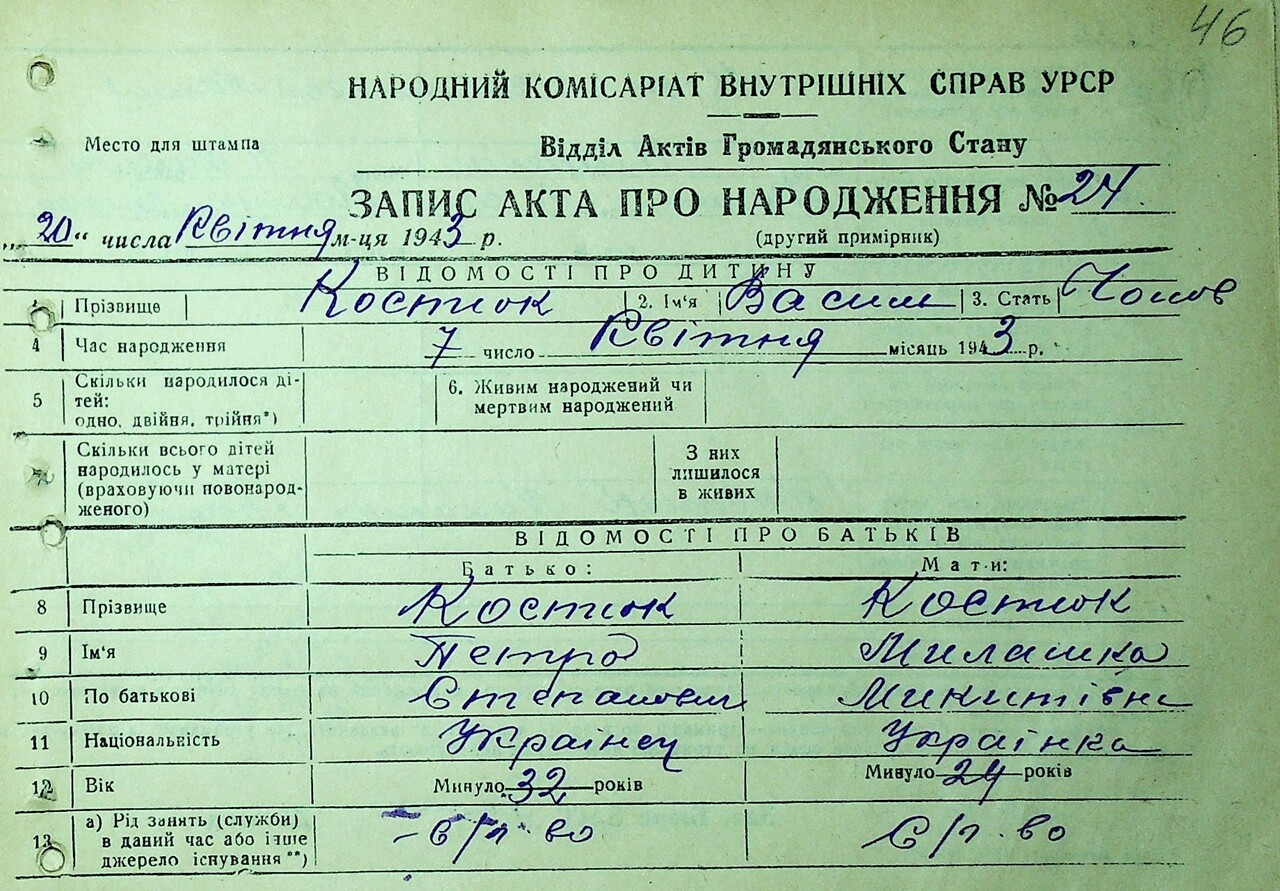 46
НАРОДНИЙ КОМІСАРІАТ ВНУТРІШНІХ СПРАВ УРСР
Место для штампа
Відділ Актів Громадянського Стану
ЗАПИС АКТА ПРО НАРОДЖЕННЯ № 24
„20“ числа Квітня м-ця 1943 р.
(другий примірник)
ВІДОМОСТІ ПРО ДИТИНУ
1 Прізвище Костюк 2. Ім'я Васил 3. Стать Чолов
4 Час народження 7 число Квітня місяць 1943 р.
5 Скільки народилося ді-
тей:
одно, двійня, трійня*)
6. Живим народжений чи
мертвим народжений
7 Скільки всього дітей
народилось у матері
(враховуючи новонарод-
женого)
З них
лишилося
в живих
ВІДОМОСТІ ПРО БАТЬКІВ
Батько: Мати:
8 Прізвище Костюк Костюк
9 Ім'я Петро Милашка
10 По батькові Степанович Микитівна
11 Національність Українец Українка
12 Вік Минуло 32 років Минуло 24 років
13 а) Рід занять (служби)
в даний час або інше
джерело існування**)
с/г-во с/г-во